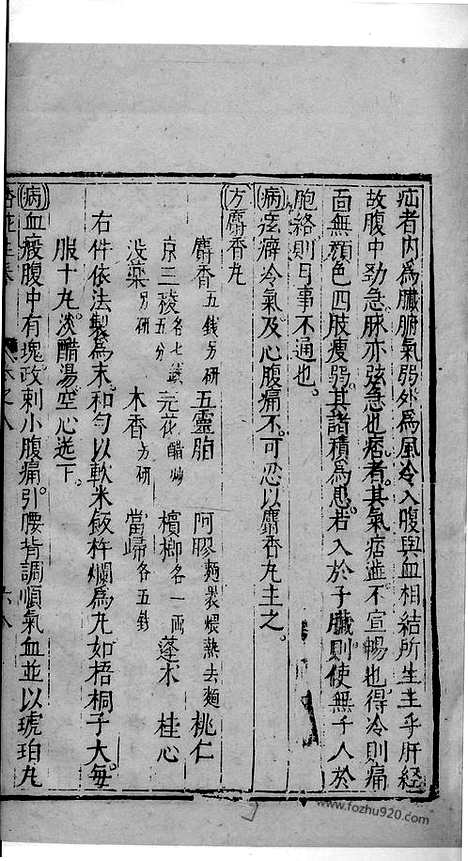 疝者内為臟腑氣弱外為風冷入腹與血相結所生主乎肝經
故腹中勁急脉亦弦急也痞者其氣痞逆不宣暢也得冷則痛
面無顔色四肢瘦弱其諸積為患若入於子臟則使無子入於
胞絡則月事不通也
病痃癖冷氣及心腹痛不可忍以麝香丸主之
方麝香丸
麝香五錢另研 五靈脂 阿膠麵裹煨熱去麵 桃仁
京三稜各七錢五分 芫花醋炒 檳榔各一兩 蓬术 桂心
没藥另研 木香另研 當歸各五錢
右件依法製為末和勻以軟米飯杵爛為丸如梧桐子大每
服十丸淡醋湯空心送下
病血瘕腹中有塊攻刺小腹痛引腰背調順氣血並以琥珀丸
www.fozhu920.com